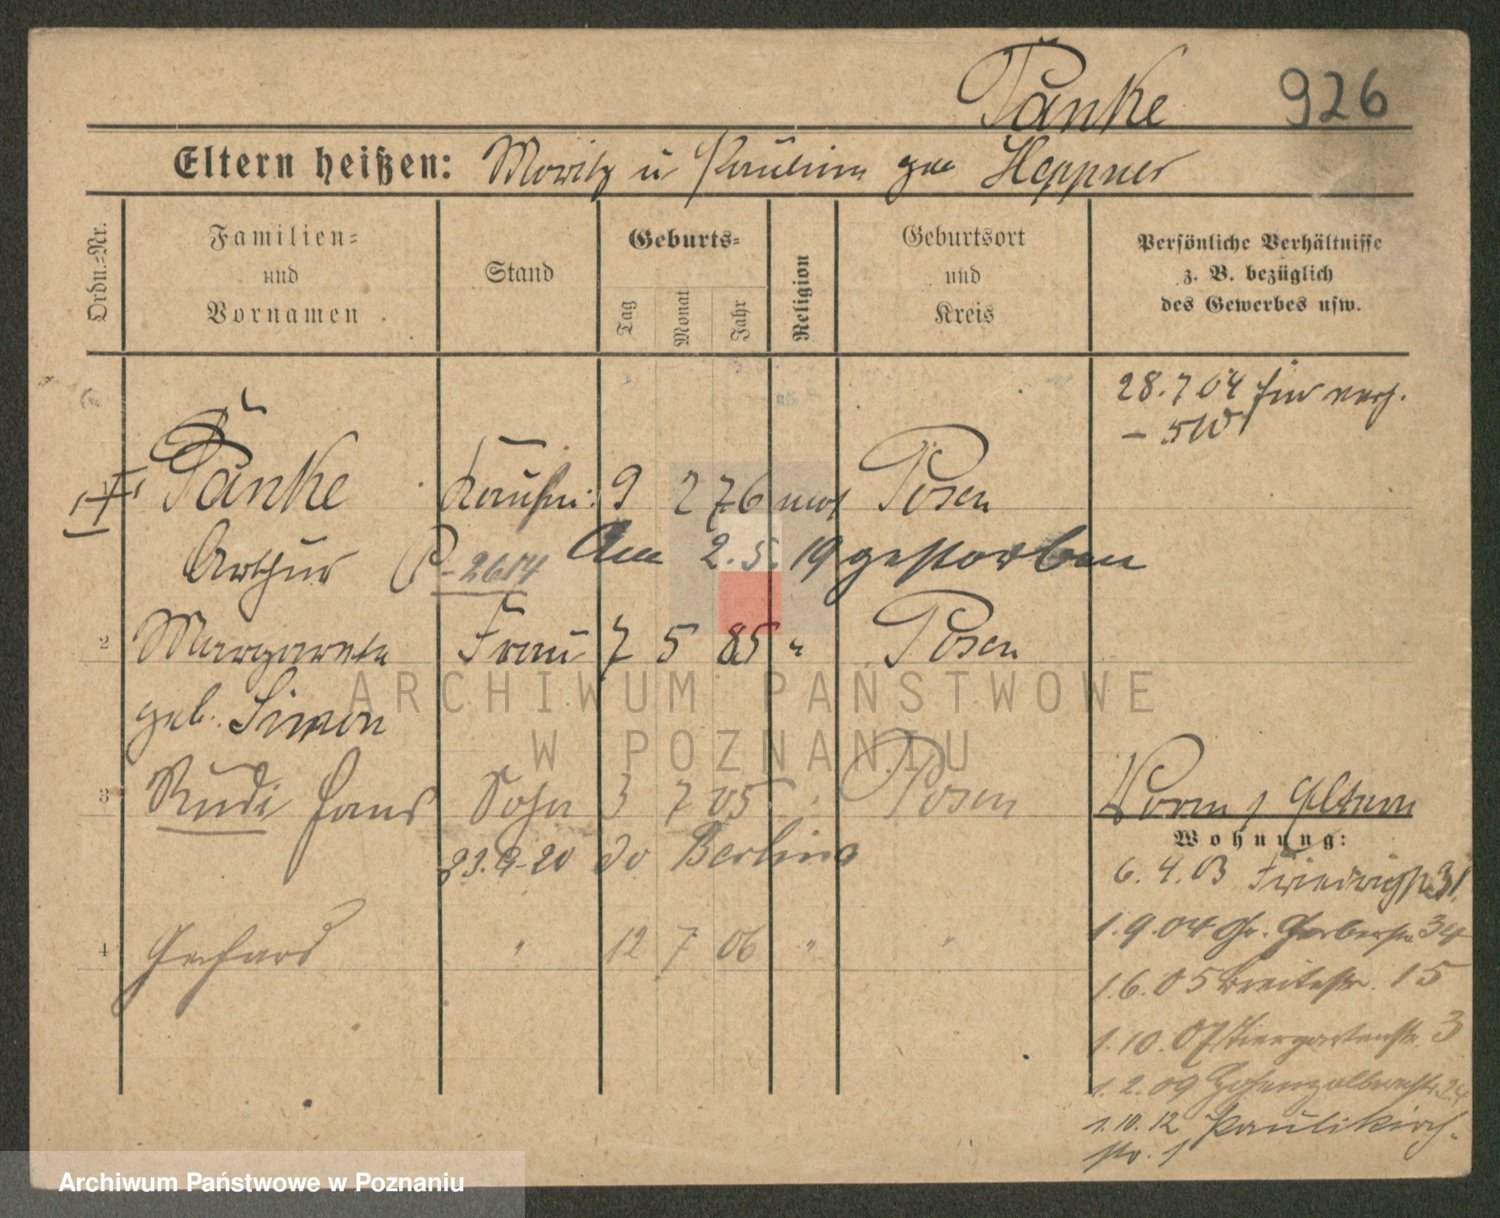 Tänke 926
Eltern heißen: Moritz u Paulina geb Heppner
Ordn.-Nr.
Familien-
und
Vornamen
Stand
Geburts-
Tag
Monat
Jahr
Religion
Geburtsort
und
Kreis
Persönliche Verhältnisse
z. B. bezüglich
des Gewerbes usw.
28.7 04 hier verh.
Tänke Kaufm: 9 2 76 mos Posen
Arthur P-2614 Am 2.5.19 gestorben
2 Margarete Frau 7 5 85 " Posen
geb. Simon
3 Rudi Hans Sohn 3 7 05 " Posen
23.9.20 Berlin
4 Gerhard " 12 7 06 " "
Eltern
Wohnung:
6.4.03 Friedrichstr 31
1.9.04 Gr. Gerberstr 34
1.6.05 Breitestr. 15
1.10.07 Tiergartenstr. 3
1.2.09 Hohenzollernstr. 24
1.10.12 Paulikirch-
str. 1
ARCHIWUM PAŃSTWOWE
W POZNANIU
Archiwum Państwowe w Poznaniu